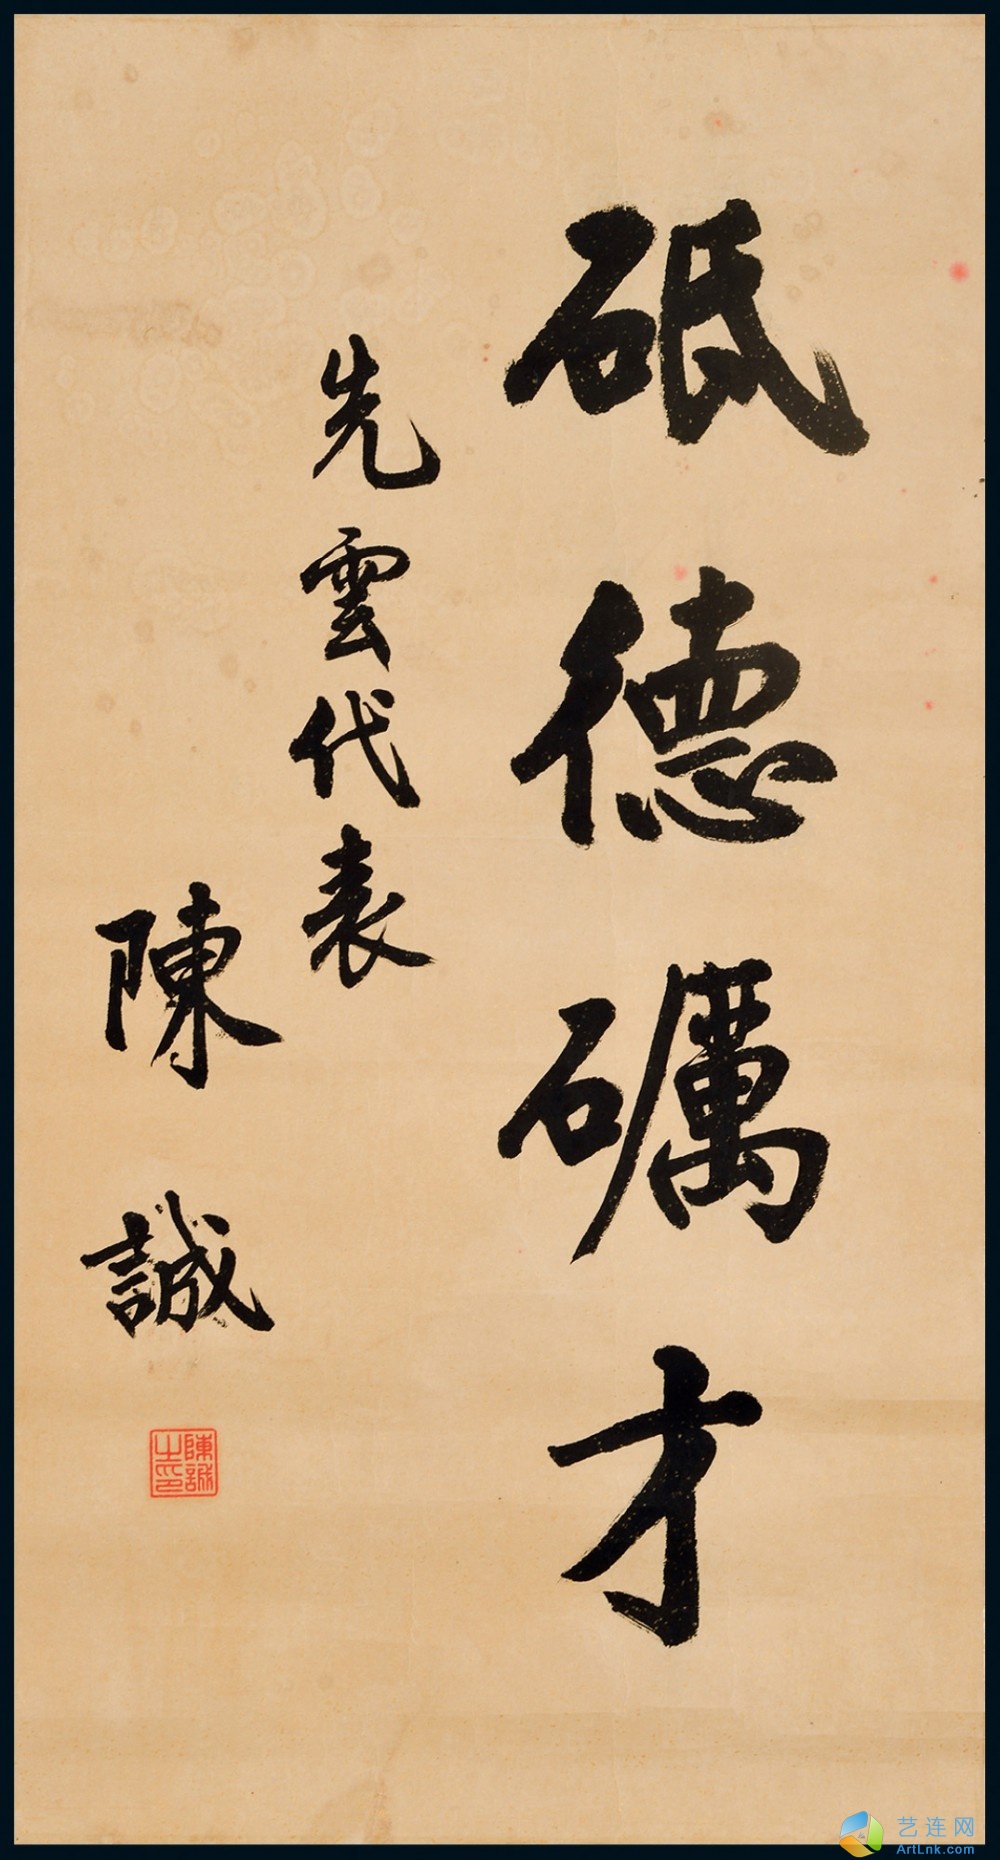 砥德礪才
先雲代表
陳誠
陳誠之印
艺连网
ArtLnk.com